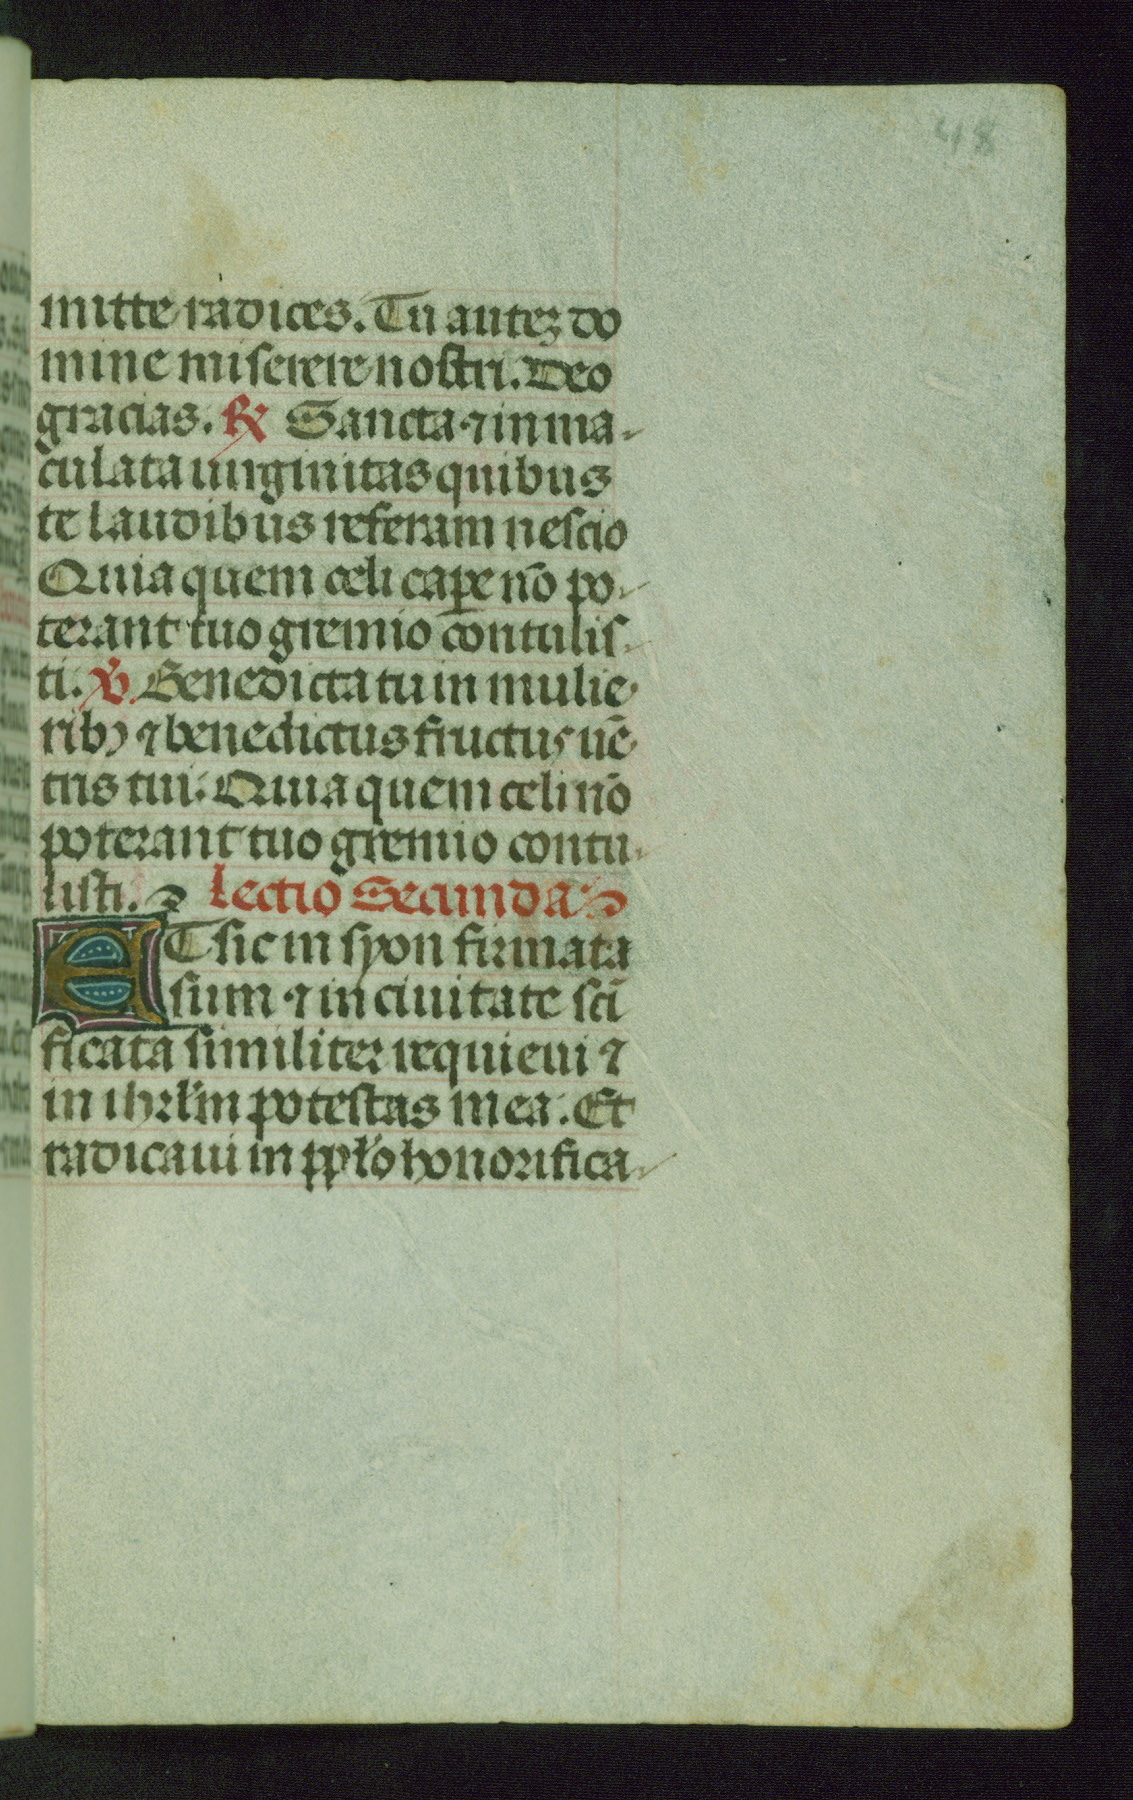 48
mitte radices. Tu autez do
mine miserere nostri. Deo
gracias. ℟ Sancta ⁊ inma-
culata uirginitas quibus
te laudibus referam nescio
Quia quem celi caꝑe nō po-
terant tuo gremio contulis-
ti. ℣ Benedicta tu in mulie-
ribꝰ ⁊ benedictus fructus uē-
tris tui. Quia quem celi nō
poterant tuo gremio contu-
listi. Lectio Secunda.
ET sic in syon firmata
sum ⁊ in ciuitate sc̄i
ficata similiter requieui ⁊
in ihrl̄m potestas mea. Et
radicaui in ppl̄o honorifica-